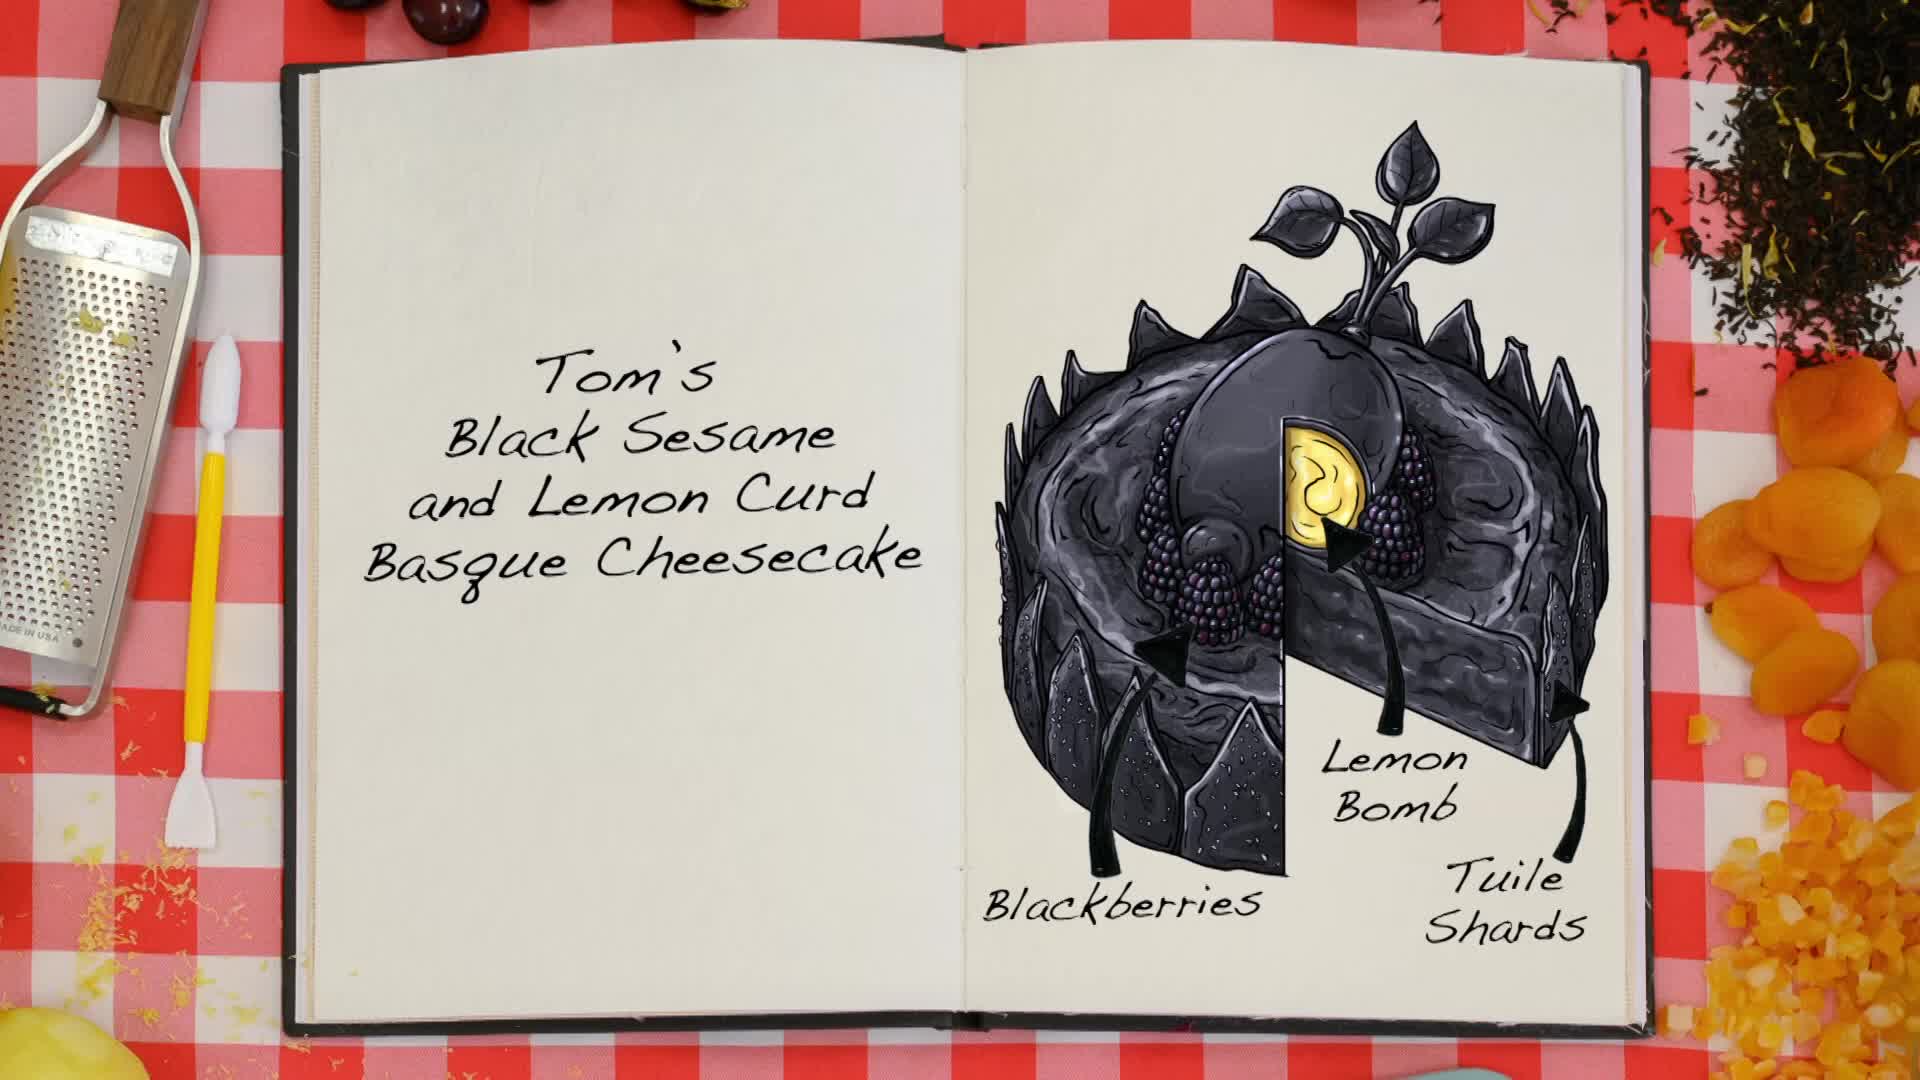 Tom's
Black Sesame
and Lemon Curd
Basque Cheesecake
Lemon
Bomb
Tuile
Shards
Blackberries
MADE IN USA